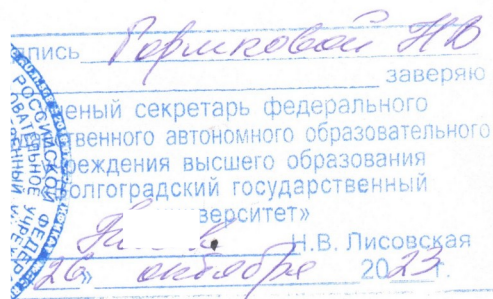 пись Горшковой НВ
заверяю
еный секретарь федерального
ственного автономного образовательного
реждения высшего образования
олгоградский государственный
верситет»
Н.В. Лисовская
26» октября 2023 г.
РОССИЙСКОЙ ФЕДЕР